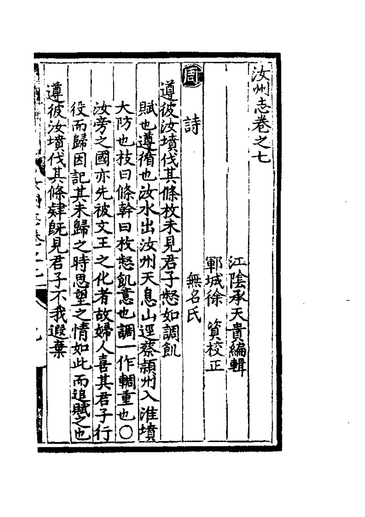 汝州志卷之七
江陰承天貴編輯
鄆城徐 資校正
周
詩
無名氏
遵彼汝墳伐其條枚未見君子惄如調飢
賦也遵循也汝水出汝州天息山逕蔡潁州入淮墳
大防也枝曰條幹曰枚惄飢意也調一作輖重也〇
汝旁之國亦先被文王之化者故婦人喜其君子行
役而歸因記其未歸之時思望之情如此而追賦之也
遵彼汝墳伐其條肄旣見君子不我遐棄